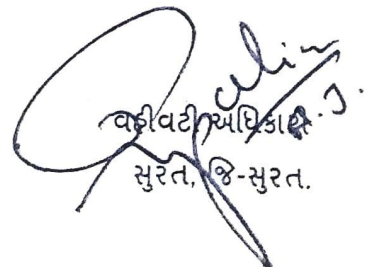 વહીવટી અધિકારી
સુરત, જિ-સુરત.